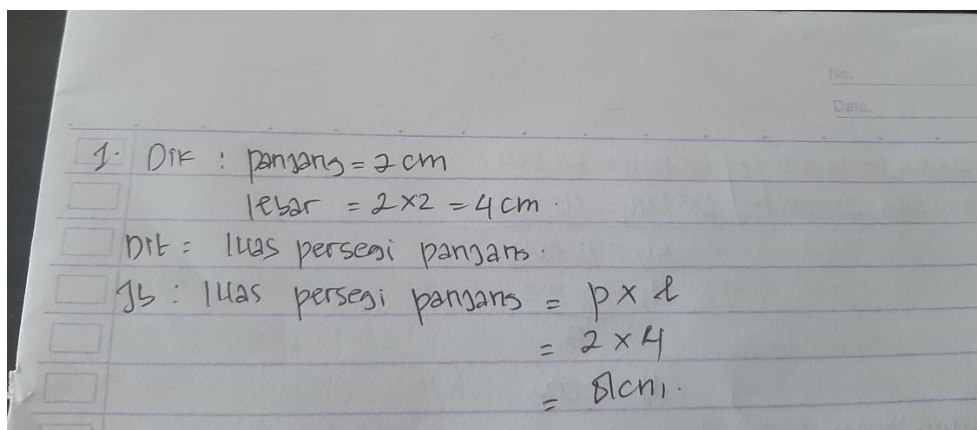 No.
Date.
1. Dik : panjang = 2 cm
lebar = 2 x 2 = 4 cm.
Dit : luas persegi panjang.
Jb : luas persegi panjang = p x l
= 2 x 4
= 8 cm.